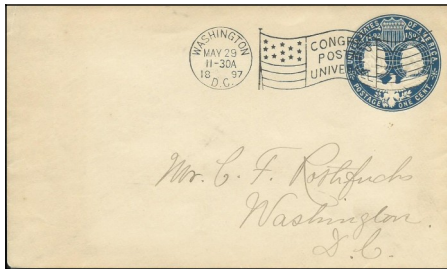 WASHINGTON
MAY 29
11-30A
18 97
D.C.
CONGR
POST
UNIVE
UNITED STATES OF AMERICA
POSTAGE ONE CENT
Mr. C. F. Rothfuchs
Washington
D.C.